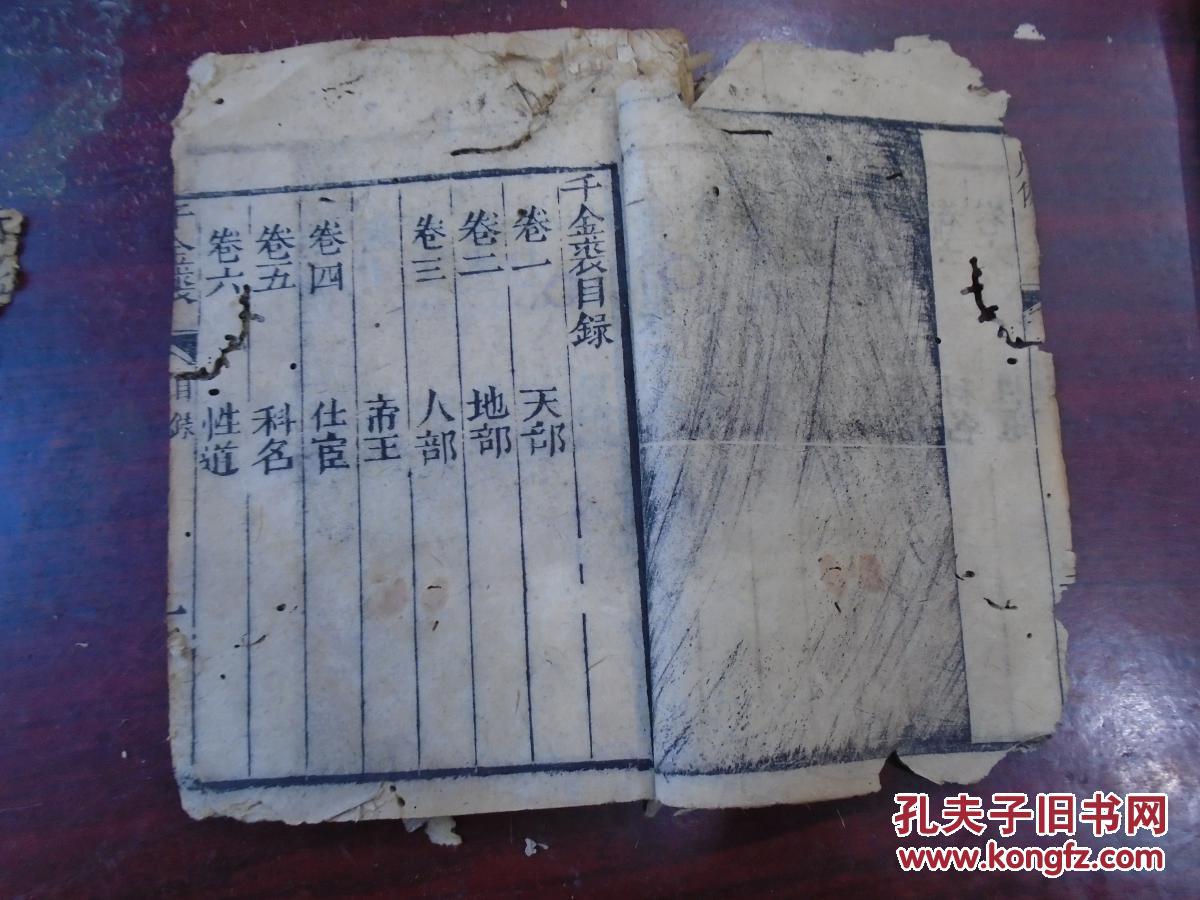 千金裘目録
卷一 天部
卷二 地部
卷三 人部
帝王
卷四 仕宦
卷五 科名
卷六 性道
千金裘 目録 一
孔夫子旧书网
www.kongfz.com